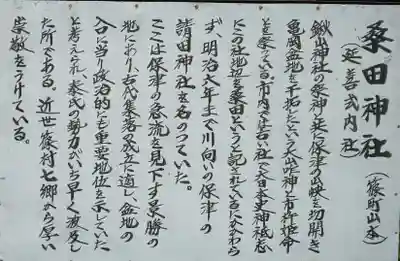 桑田神社
(延喜式内社)
(篠町山本)
鍬山神社の祭神と共に保津の山峡を切開き
亀岡盆地を干拓したという大山咋神と市杵姫命
を祭っている。市内で古い社で大日本史神祇志
にこの社地辺を桑田というと記されているにかかわら
ず、明治六年まで川向いの保津の
請田神社を名のっていた。
ここは保津の急流を見下す景勝の
地にあり、古代集落の成立に適し、盆地の
入口に当り政治的にも重要地位を示していた
と考えられ、秦氏の勢力がいち早く波及し
た所である。近世篠村七郷から厚い
崇敬をうけている。